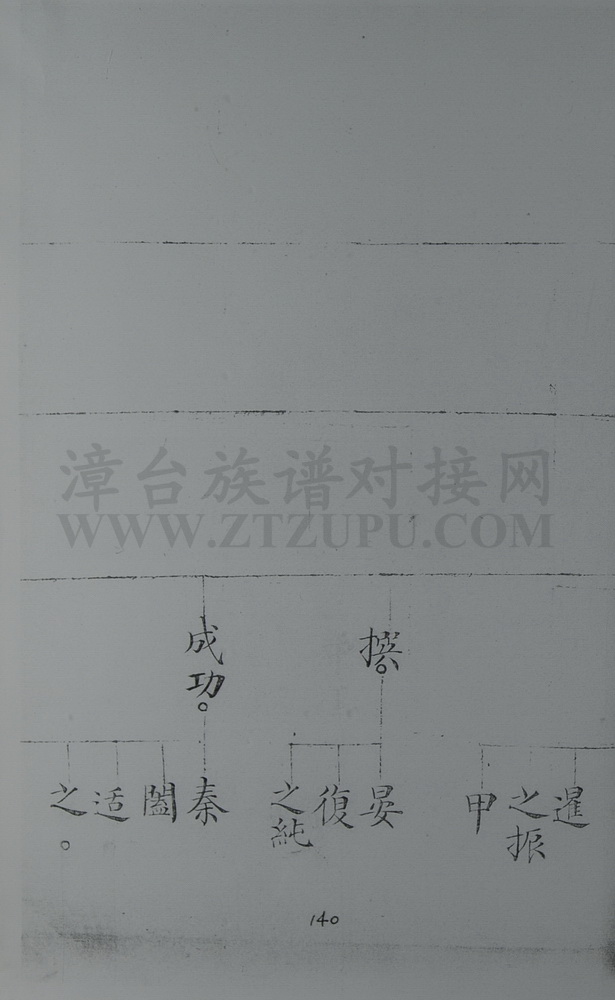 漳台族谱对接网
WWW.ZTZUPU.COM
撰
成功
暹
之振
甲
晏
復
之純
秦
闔
适
之
140